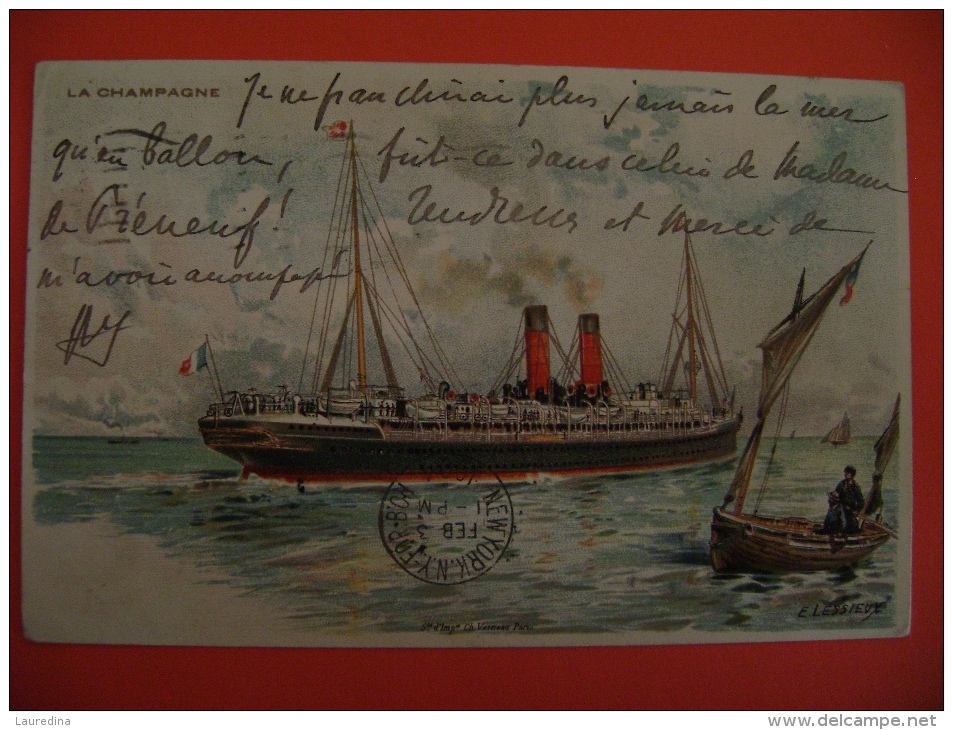 LA CHAMPAGNE
Je ne franchirai plus jamais la mer
qu'en ballon, fût-ce dans celui de Madame
de Tendresses et merci de
m'avoir accompagné
NEW YORK, N.Y.
FEB 3
1 - PM
E. LESSIEUX
Sté d'Impie Ch. Verneau Paris
Lauredina
www.delcampe.net